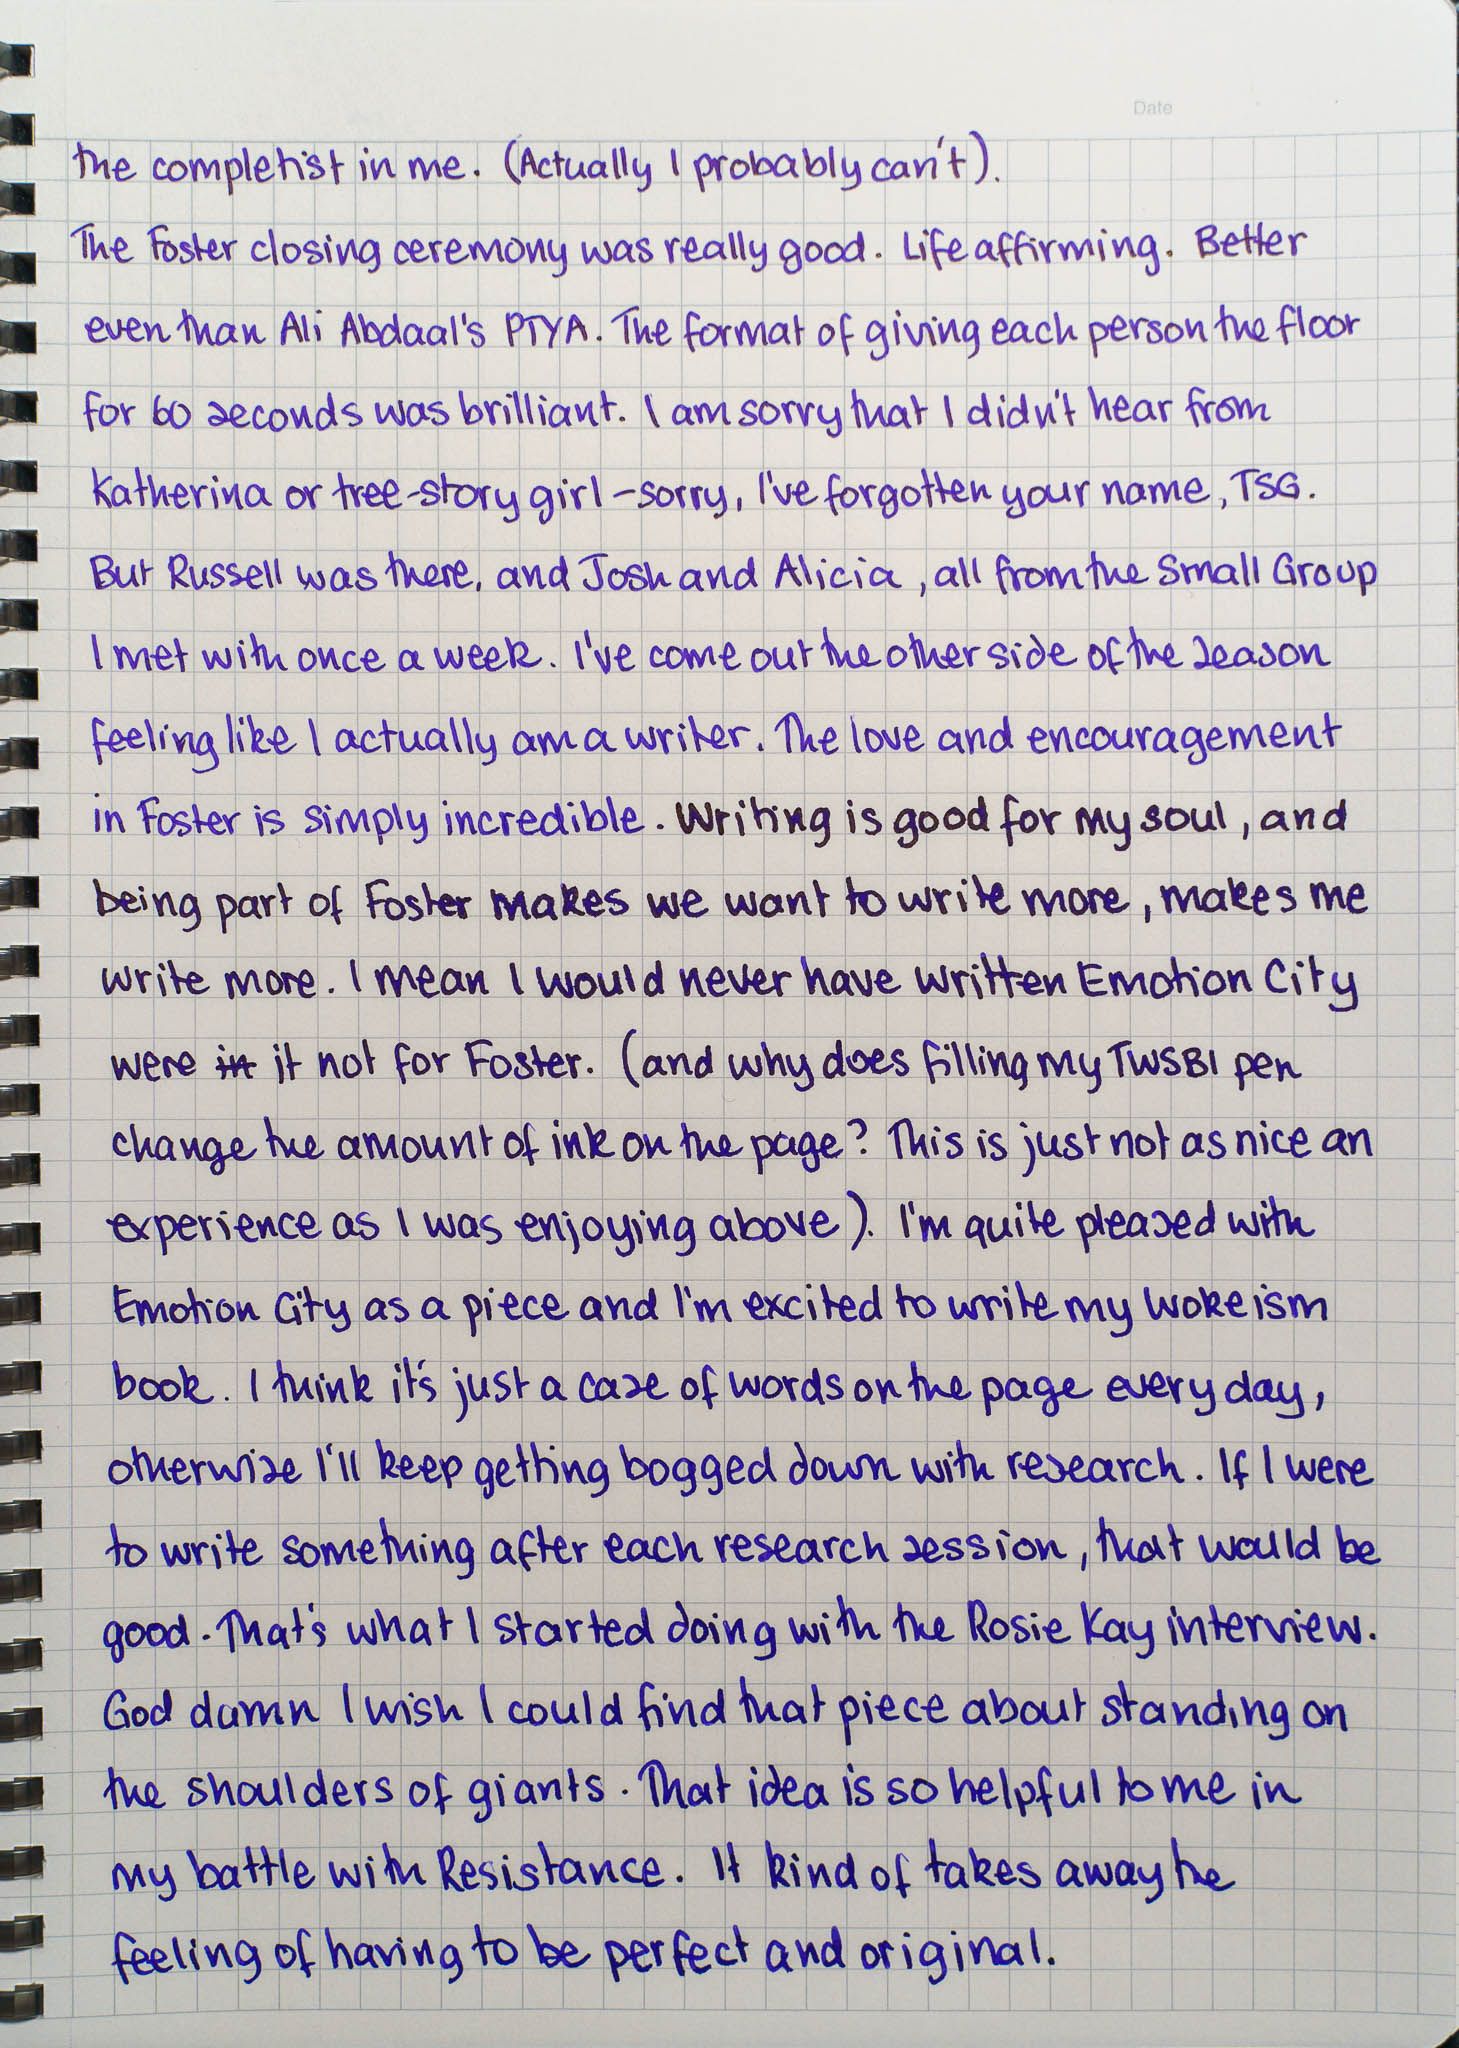 Date
the completist in me. (Actually I probably can't).
The Foster closing ceremony was really good. Life affirming. Better
even than Ali Abdaal's PTYA. The format of giving each person the floor
for 60 seconds was brilliant. I am sorry that I didn't hear from
Katherina or tree-story girl - sorry, I've forgotten your name, TSG.
But Russell was there, and Josh and Alicia, all from the Small Group
I met with once a week. I've come out the other side of the season
feeling like I actually am a writer. The love and encouragement
in Foster is simply incredible. Writing is good for my soul, and
being part of Foster makes we want to write more, makes me
write more. I mean I would never have written Emotion City
were in it not for Foster. (and why does filling my TWSBI pen
change the amount of ink on the page? This is just not as nice an
experience as I was enjoying above). I'm quite pleased with
Emotion City as a piece and I'm excited to write my wokeism
book. I think it's just a case of words on the page every day,
otherwise I'll keep getting bogged down with research. If I were
to write something after each research session, that would be
good. That's what I started doing with the Rosie Kay interview.
God damn I wish I could find that piece about standing on
the shoulders of giants. That idea is so helpful to me in
my battle with Resistance. It kind of takes away the
feeling of having to be perfect and original.